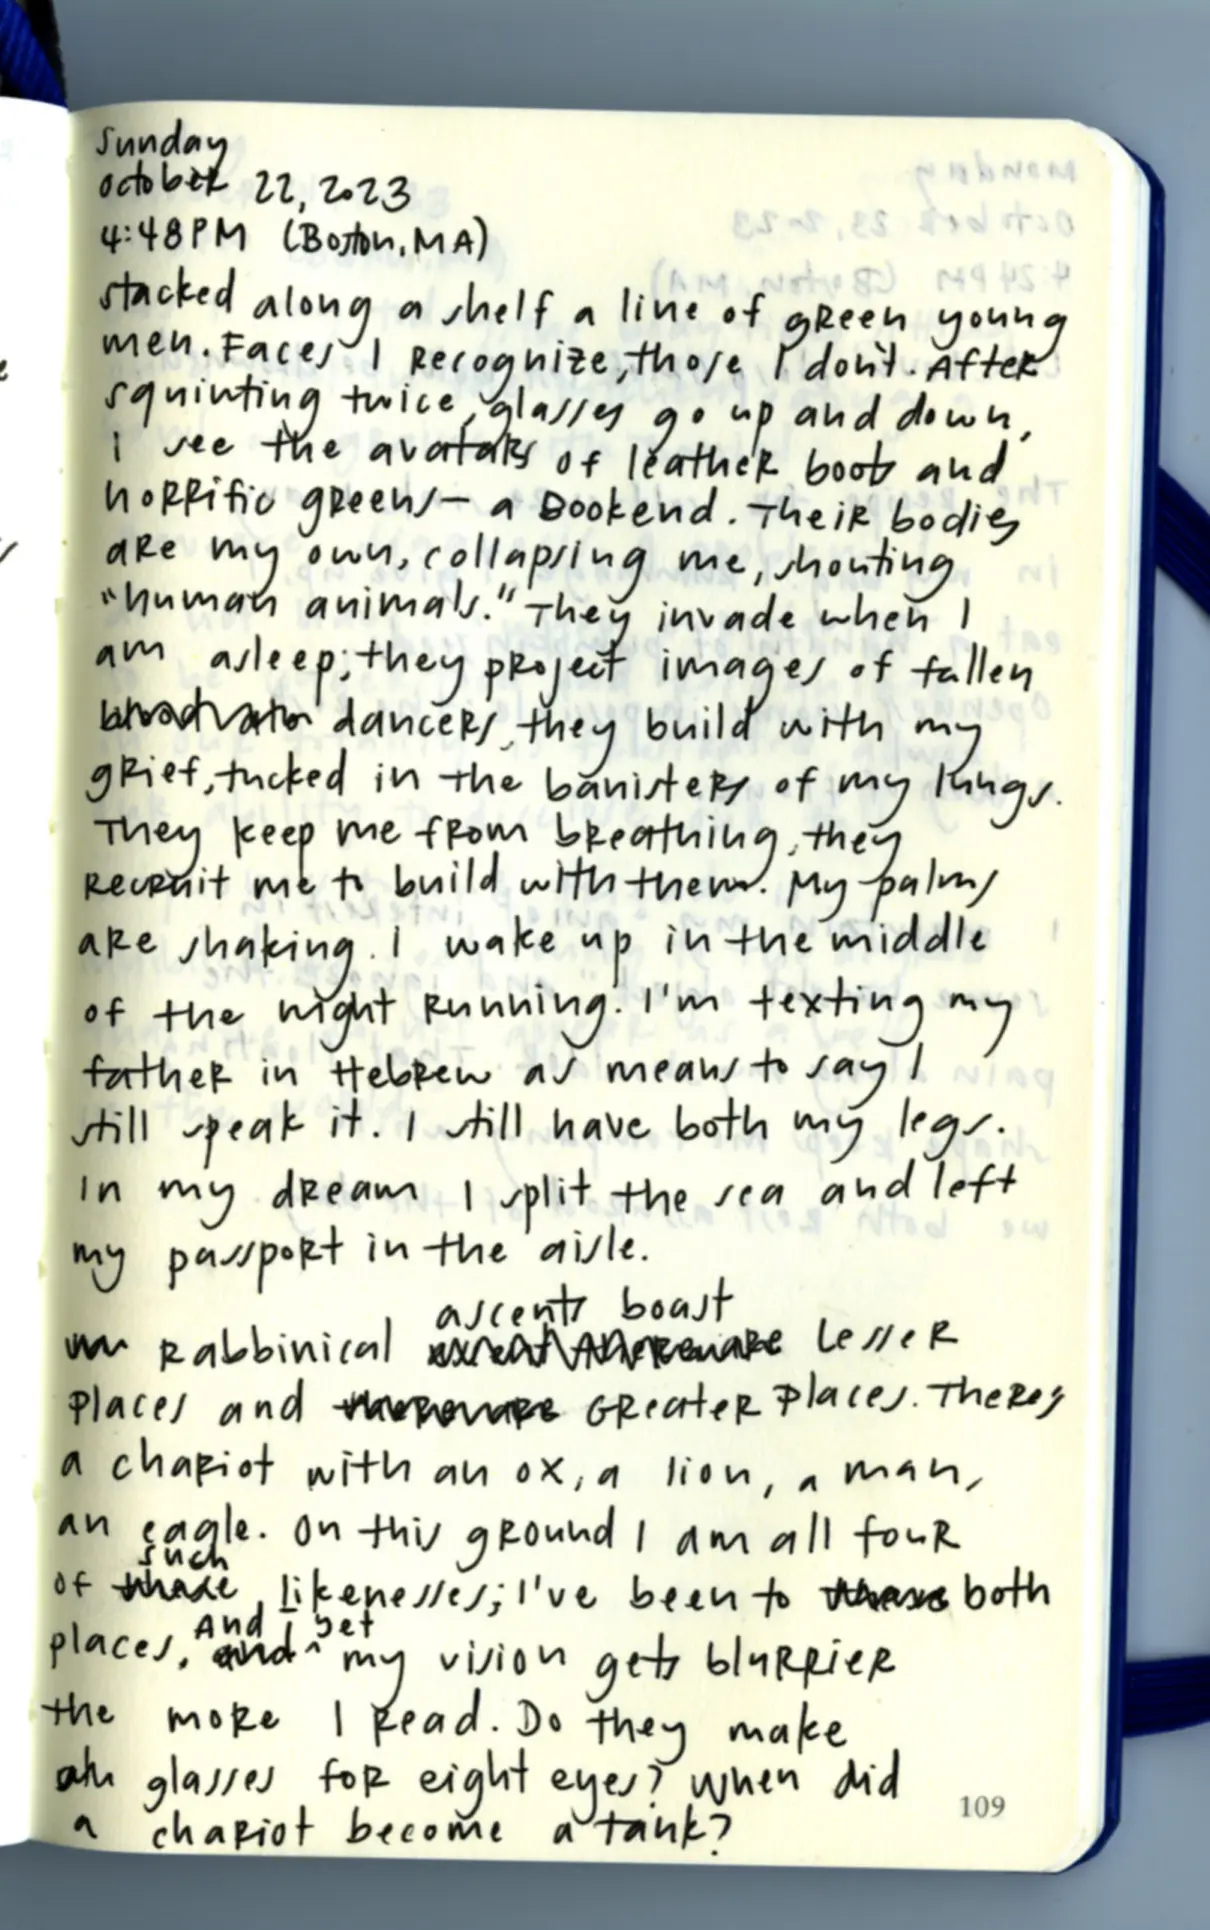 Sunday
October 22, 2023
4:48PM (Boston, MA)
stacked along a shelf a line of green young
men. Faces I recognize, those I don't. After
squinting twice, glasses go up and down,
I see the avatars of leather boots and
horrific greens — a Bookend. Their bodies
are my own, collapsing me, shouting
"human animals." They invade when I
am asleep; they project images of fallen
dancers, they build with my
grief, tucked in the banisters of my lungs.
They keep me from breathing, they
recruit me to build with them. My palms
are shaking. I wake up in the middle
of the night running. I'm texting my
father in Hebrew as means to say I
still speak it. I still have both my legs.
In my dream I split the sea and left
my passport in the aisle.
ascents boast
Rabbinical Lesser
Places and Greater Places. Theres
a chariot with an ox, a lion, a man,
an eagle. On this ground I am all four
such
of likenesses; I've been to both
And I bet
places. my vision gets blurrier
the more I read. Do they make
glasses for eight eyes? When did
a chariot become a tank?
109